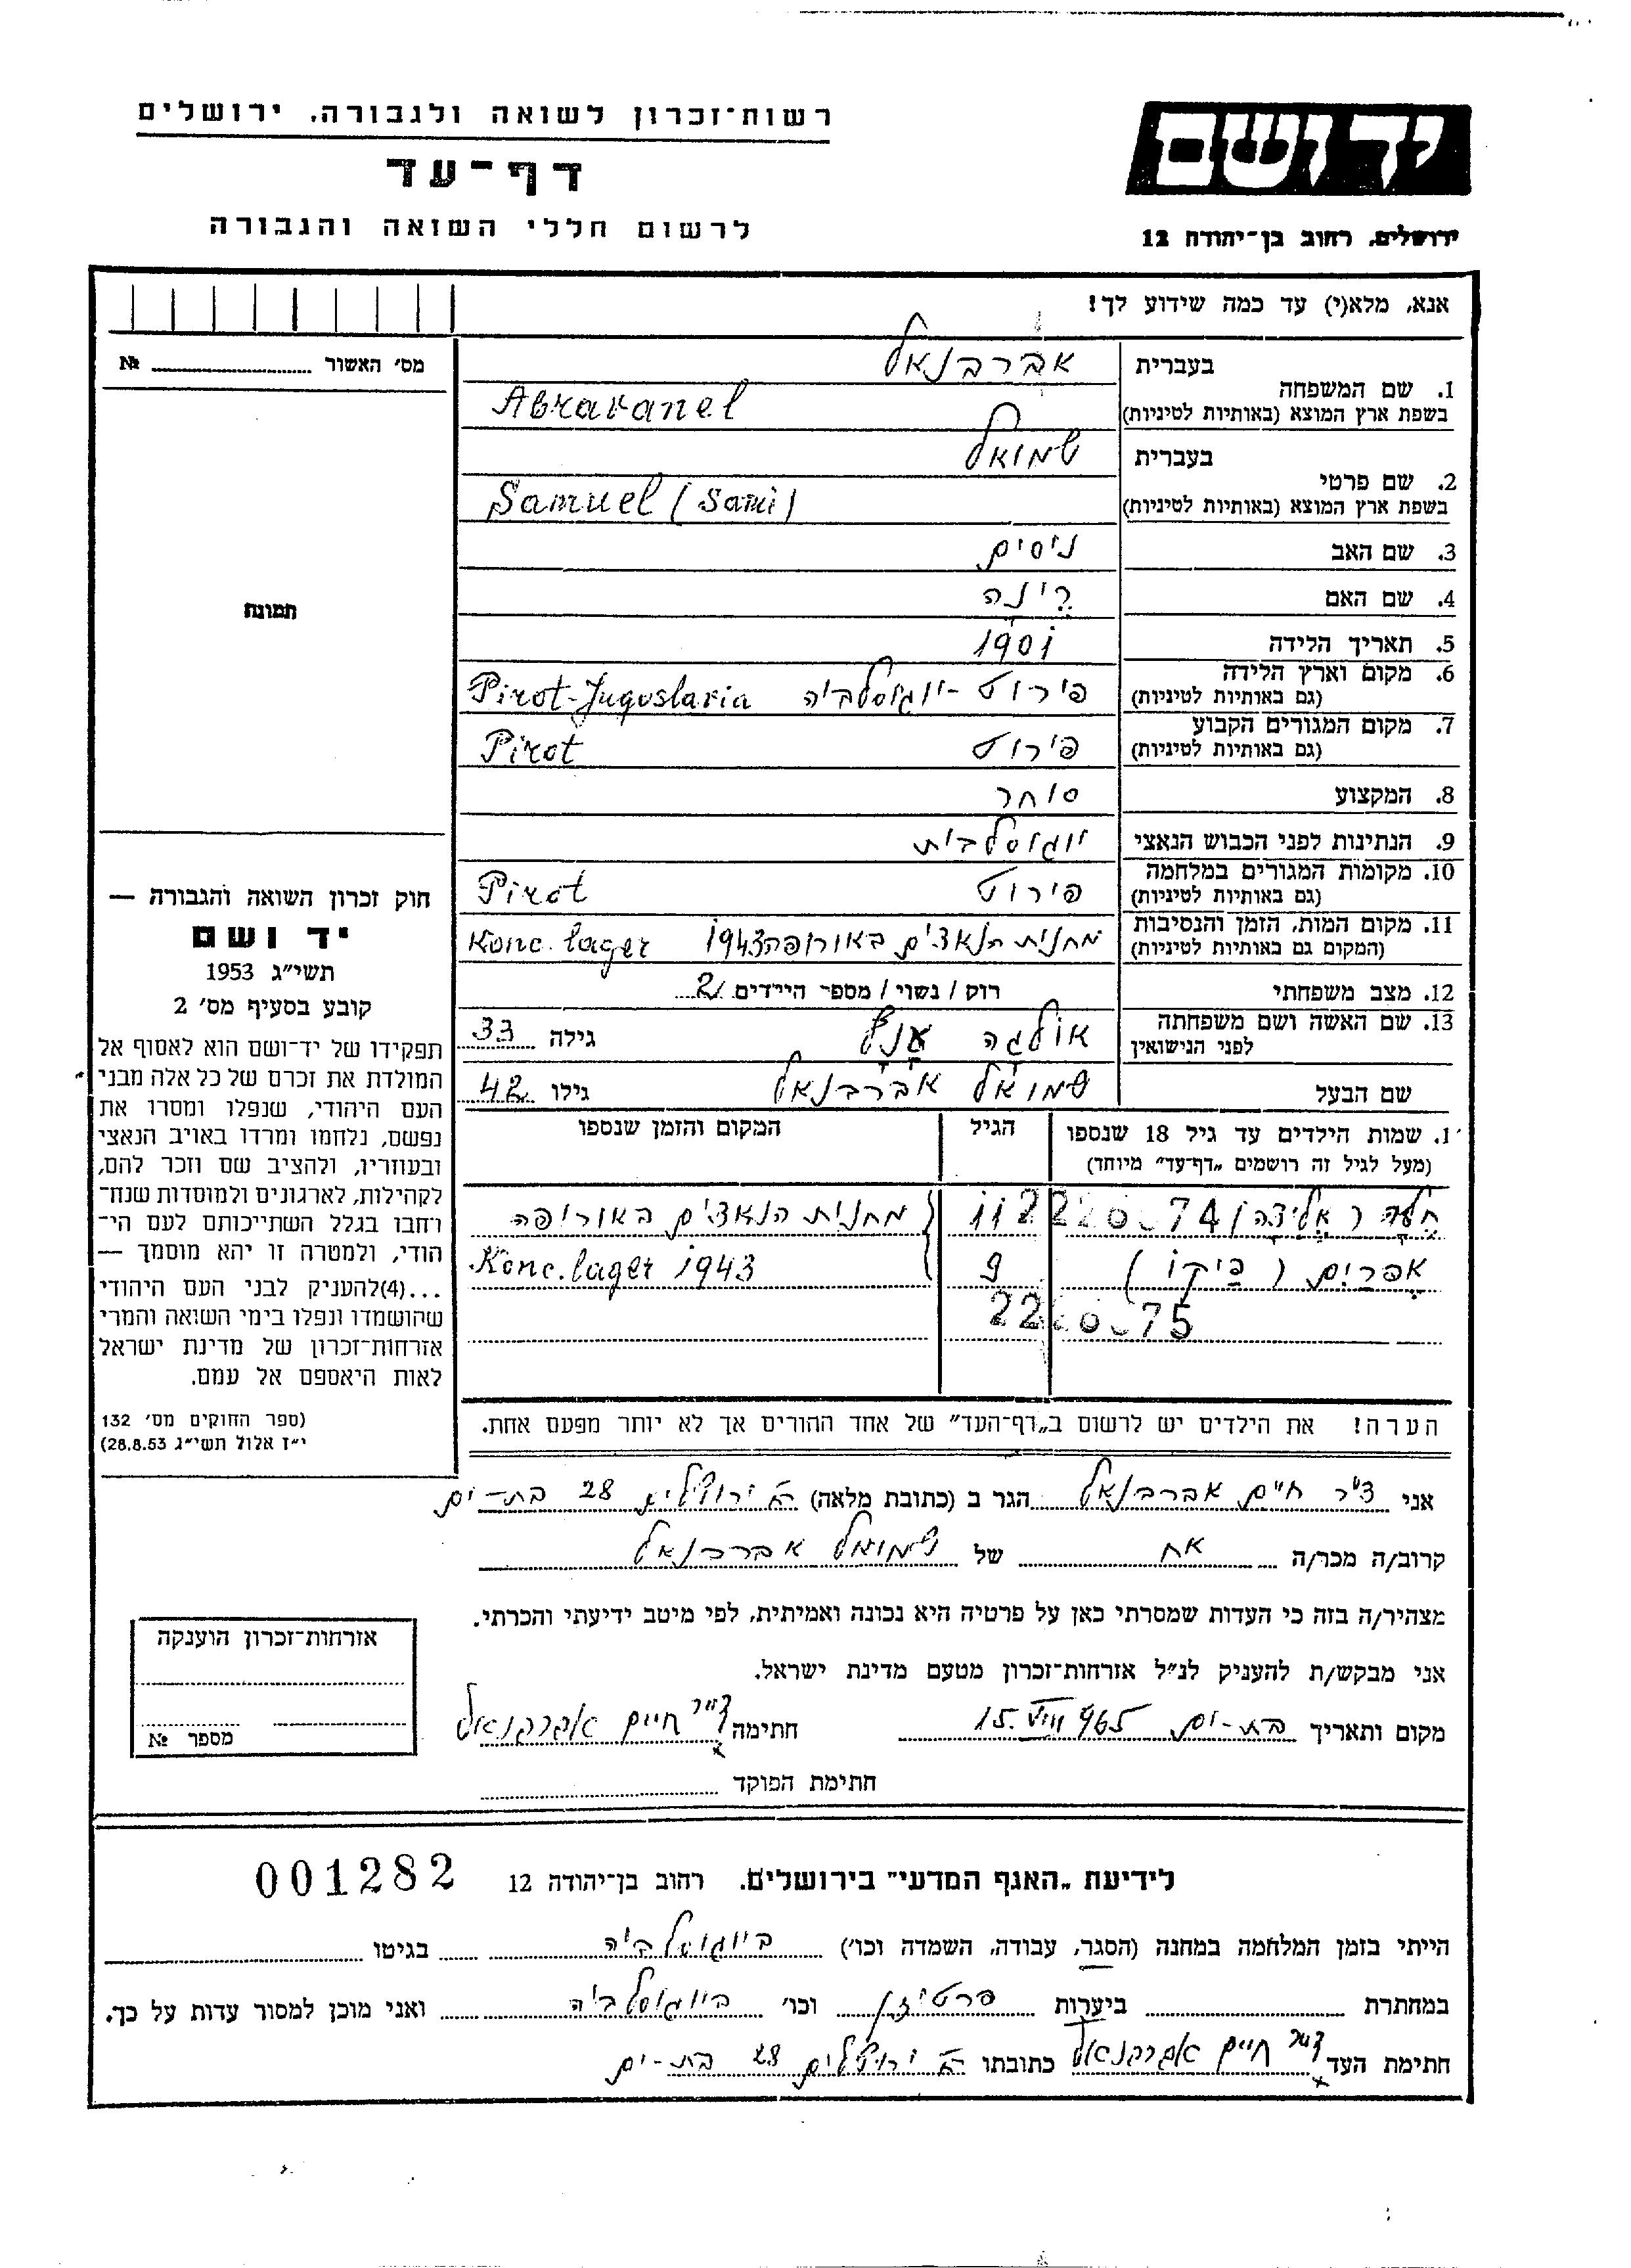 רשות־זכרון לשואה ולגבורה, ירושלים
דף־עד
לרשום חללי השואה והגבורה
ידושם
ירושלים, רחוב בן־יהודה 12
אנא, מלא(י) עד כמה שידוע לך!
מס׳ האשור № 
תמונה
בעברית אברבנאל
1. שם המשפחה
בשפת ארץ המוצא (באותיות לטיניות) Abravanel
בעברית שמואל
2. שם פרטי
בשפת ארץ המוצא (באותיות לטיניות) Samuel (Sami)
3. שם האב ניסים
4. שם האם רינה
5. תאריך הלידה 1901
6. מקום וארץ הלידה
(גם באותיות לטיניות) פירוט - יוגוסלביה Pirot-Jugoslavia
7. מקום המגורים הקבוע
(גם באותיות לטיניות) פירוט Pirot
8. המקצוע סוחר
9. הנתינות לפני הכבוש הנאצי יוגוסלבית
10. מקומות המגורים במלחמה
(גם באותיות לטיניות) פירוט Pirot
11. מקום המות, הזמן והנסיבות
(המקום גם באותיות לטיניות) מחנית הנאצים באורופה 1943 Konc. lager
12. מצב משפחתי רווק / נשוי / מספר הילדים 2
13. שם האשה ושם משפחתה
לפני הנישואין אולגה גילה 33
שם הבעל שמואל אברבנאל גילו 42
1. שמות הילדים עד גיל 18 שנספו הגיל המקום והזמן שנספו
(מעל לגיל זה רושמים „דף־עד״ מיוחד)
(אליצה) 2220074 11 מחנית הנאצים באורופה
אפרים (פיקו) 9 Konc. lager 1943
2220075
הערה! את הילדים יש לרשום ב„דף־העד״ של אחד ההורים אך לא יותר מפעם אחת.
חוק זכרון השואה והגבורה —
יד ושם
תשי״ג 1953
קובע בסעיף מס׳ 2
תפקידו של יד־ושם הוא לאסוף אל
המולדת את זכרם של כל אלה מבני
העם היהודי, שנפלו ומסרו את
נפשם, נלחמו ומרדו באויב הנאצי
ובעוזריו, ולהציב שם וזכר להם,
לקהילות, לארגונים ולמוסדות שנח־
רחבו בגלל השתייכותם לעם הי־
הודי, ולמטרה זו יהא מוסמך —
...(4)להעניק לבני העם היהודי
שהושמדו ונפלו בימי השואה והמרי
אזרחות־זכרון של מדינת ישראל
לאות היאספם אל עמם.
(ספר החוקים מס׳ 132
י״ז אלול תשי״ג 28.8.53)
אני ד״ר חיים אברבנאל הגר ב (כתובת מלאה) ירושלים 28 בת-ים
קרוב/ה מכר/ה אח של שמואל אברבנאל
מצהיר/ה בזה כי העדות שמסרתי כאן על פרטיה היא נכונה ואמיתית, לפי מיטב ידיעתי והכרתי.
אני מבקש/ת להעניק לנ״ל אזרחות־זכרון מטעם מדינת ישראל.
מקום ותאריך בת-ים 15. VIII 965 חתימה ד״ר חיים אברבנאל
חתימת הפוקד
אזרחות־זכרון הוענקה
מספר №
לידיעת „האגף המדעי״ בירושלים, רחוב בן־יהודה 12 001282
הייתי בזמן המלחמה במחנה (הסגר, עבודה, השמדה וכו׳) ביוגוסלביה בגיטו
במחתרת ביערות פרטיזן וכו׳ ביוגוסלביה ואני מוכן למסור עדות על כך.
חתימת העד ד״ר חיים אברבנאל כתובתו ירושלים 28 בת-ים